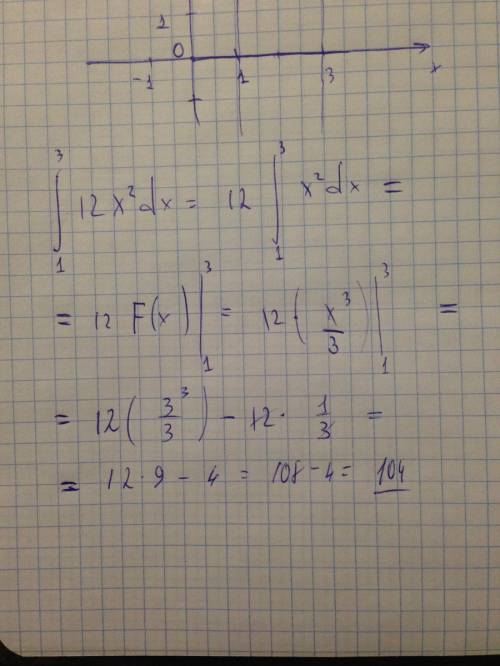 1
0
-1 1 3 x
∫₁³ 12 x² dx = 12 ∫₁³ x² dx =
= 12 F(x) |₁³ = 12 · ( x³/3 ) |₁³ =
= 12 ( 3³/3 ) - 12 · 1/3 =
= 12 · 9 - 4 = 108 - 4 = 104